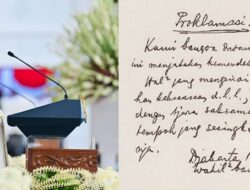 Proklamasi
Kami bangsa Indone
ini menjatakan kemerdek
Hal² jang mengenai
kekoeasaan d.l.l.,
dengan tjara saksama
tempoh jang sesingk
nja.
Djakarta,
Wakil² ban